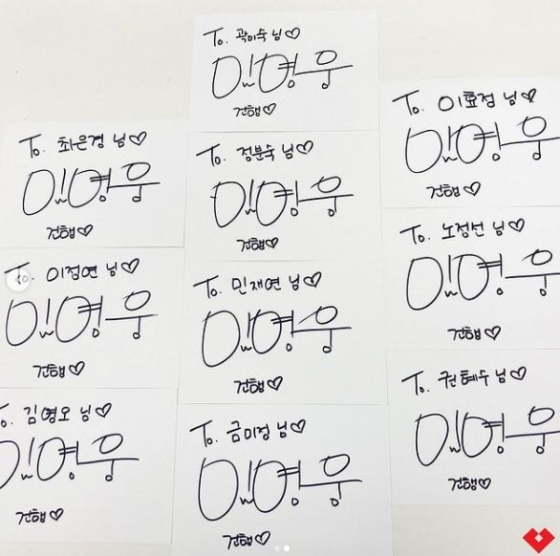 To. 곽미숙 님♡
임영웅
건행♡
To. 최은경 님♡
임영웅
건행♡
To. 정분숙 님♡
임영웅
건행♡
To. 이효정 님♡
임영웅
건행♡
To. 이정연 님♡
임영웅
건행♡
To. 민재연 님♡
임영웅
건행♡
To. 노정선 님♡
임영웅
건행♡
To. 김영오 님♡
임영웅
건행♡
To. 금미정 님♡
임영웅
건행♡
To. 권혜수 님♡
임영웅
건행♡